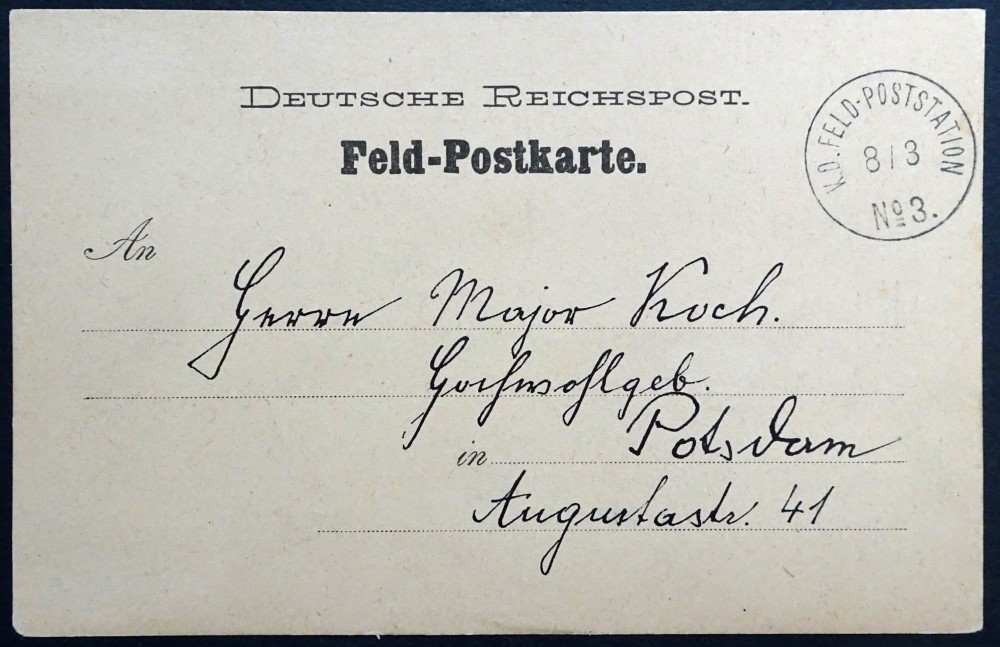 DEUTSCHE REICHSPOST.
Feld-Postkarte.
K.D. FELD-POSTSTATION
8/3
No 3.
An
Herrn Major Koch.
Hochwohlgeb.
in Potsdam
Augustastr. 41